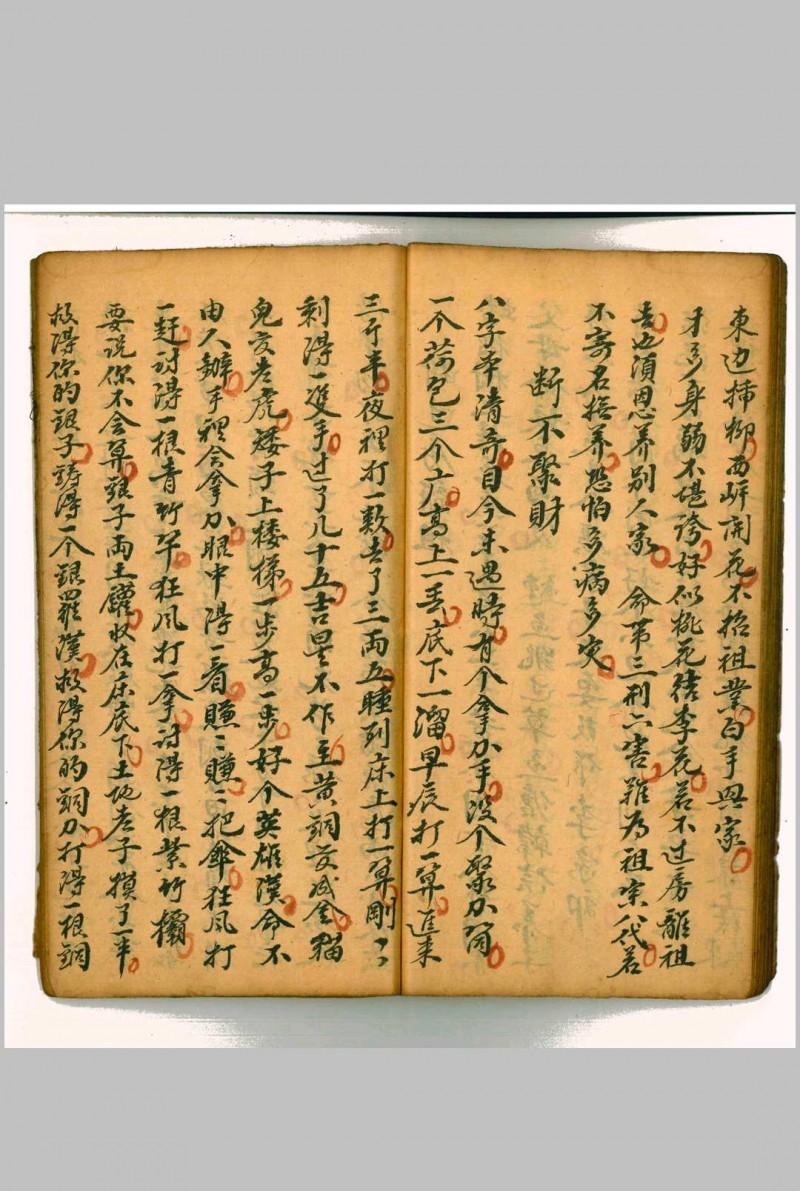 東边插柳西岸開花不招祖業白手興家
才多身弱不堪誇好似桃花結李花若不过房離祖
去也須恩养別人家 命帶三刑六害难為祖宗八代若
不寄名撫养恐怕多病多灾
断不聚財
八字本清奇目今未遇時有个拿力手沒个聚力
一个荷包三个高上一丢底下一溜早辰打一算進来
三斤半夜裡打一数去了三両五睡到床上打一算剛々
剩得一隻手过了几十五吉星不作主黄銅变成金猫
兒变老虎矮子上楼梯一步高一步好个英雄漢命不
由人辦手裡会拿力眼中得一看賺々賺々把傘狂風打
一赶討得一根青竹竿狂風打一拿討得一根紫竹
要说你不会算銀子両土罐收在床底下土地老子摸了一半
你的銀子鋳得一个銀羅漢得你的銅力打得一根銅